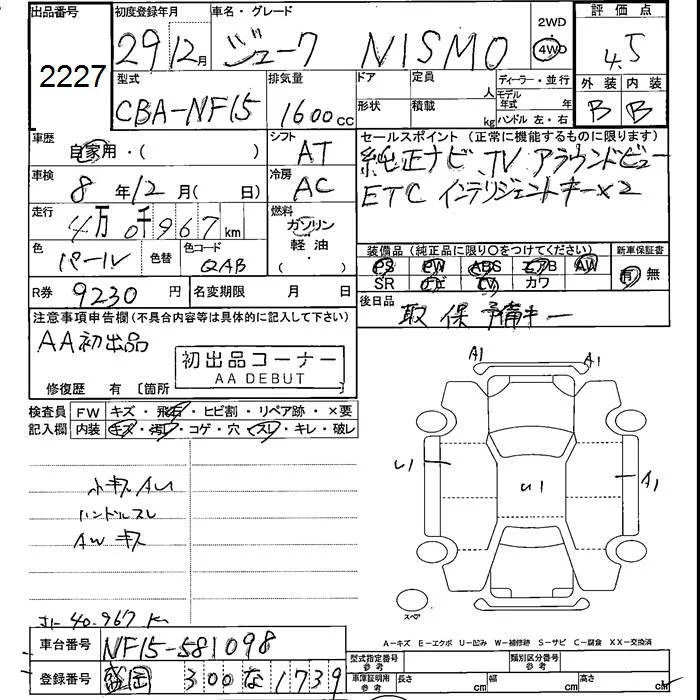 出品番号 初度登録年月 車名・グレード 評価点
2227 29年12月 ジューク NISMO 2WD 4WD 4.5
型式 排気量 ドア 定員 人 ディーラー・並行 外装 内装
CBA-NF15 1600cc 形状 積載 kg モデル年式 年 ハンドル 左・右 B B
車歴 自家用・( ) シフト AT セールスポイント(正常に機能するものに限ります)
純正ナビ、TV アラウンドビュー
車検 8年12月( 日) 冷房 AC ETC インテリジェントキー×2
走行 4万0千967km 燃料 ガソリン 軽油 ( ・ )
色 パール 色替 色コード QAB 装備品(純正品に限り○をつけてください) 新車保証書
PS PW ABS エアB AW 有 無
SR ナビ TV カワ
R券 9230円 名変期限 月 日 後日品 取 保 予備キー
注意事項申告欄(不具合内容等は具体的に記入して下さい)
AA初出品
初出品コーナー
AA DEBUT
修復歴 有 〔箇所
検査員記入欄 FW キズ・飛石・ヒビ割・リペア跡・×要
内装 キズ・汚レ・コゲ・穴・スレ・キレ・破レ
A1 A1
U1 U1 A1
小キズ AU
ハンドルスレ
AW キズ
40,967 K
スペア
A-キズ E-エクボ U-凹み W-補修跡 S-サビ C-腐食 XX-交換済
車台番号 NF15-581098
登録番号 盛岡 300 な 1739
型式指定番号 参考 類別区分番号 参考
車庫証明用 参考 長さ cm 幅 cm 高さ cm